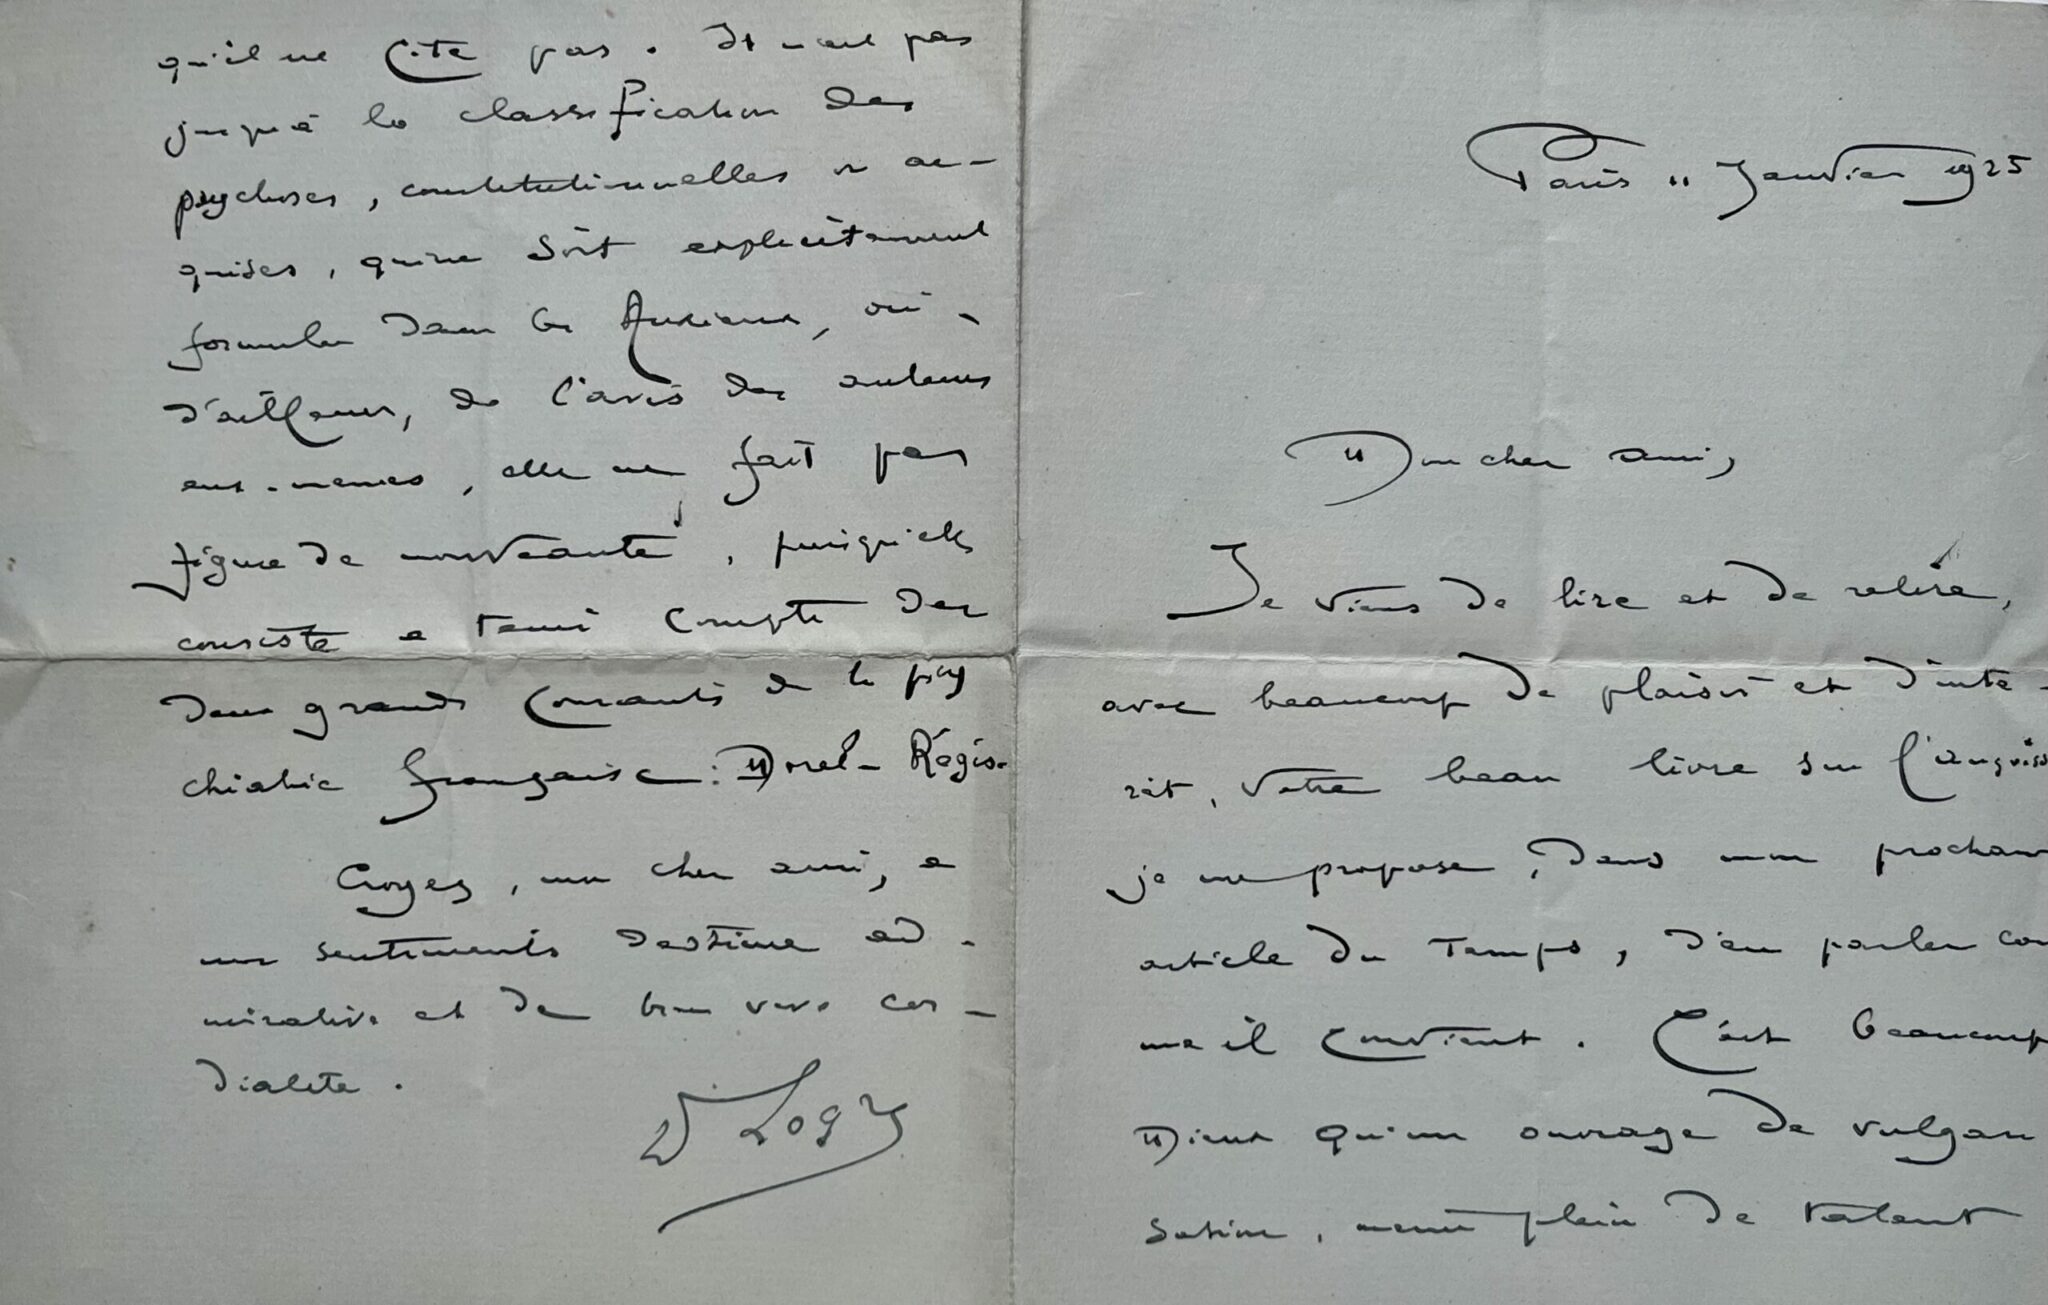 Paris 11 Janvier 1925
Mon cher ami,
Je viens de lire et de relire,
avec beaucoup de plaisir et d'inté-
rêt, votre beau livre sur l'angoiss
je me propose, dans mon prochain
article du Temps, d'en parler com
me il convient. C'est beaucoup
mieux qu'un ouvrage de vulgari
sation, même plein de talent
qu'il ne cite pas. Il n'est pas
jusqu'à la classification des
psychoses, constitutionnelles et ac-
quises, qui ne soit explicitement
formulée dans les, où
d'ailleurs, de l'avis des auteurs
eux-mêmes, elle ne fait pas
figure de nouveauté, puisqu'elle
consiste à tenir compte des
deux grands courants de la psy
chiatrie française: Morel- Régis.
Croyez, mon cher ami, à
mes sentiments d'estime ad-
mirative et de bien vive cor-
dialité.